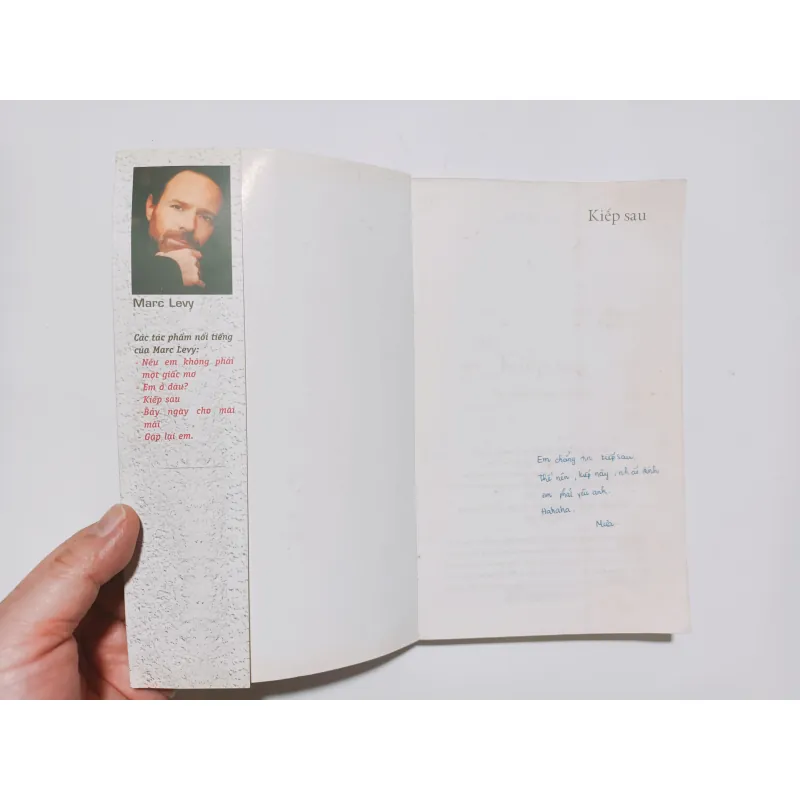 Marc Levy
Các tác phẩm nổi tiếng
của Marc Levy:
Nếu em không phải
một giấc mơ
Em ở đâu?
Kiếp sau
Bảy ngày cho mãi
mãi
Gặp lại em.
Kiếp sau
Em chẳng tin kiếp sau.
Thế nên, kiếp này, nhất định
em phải yêu anh.
Hahaha.